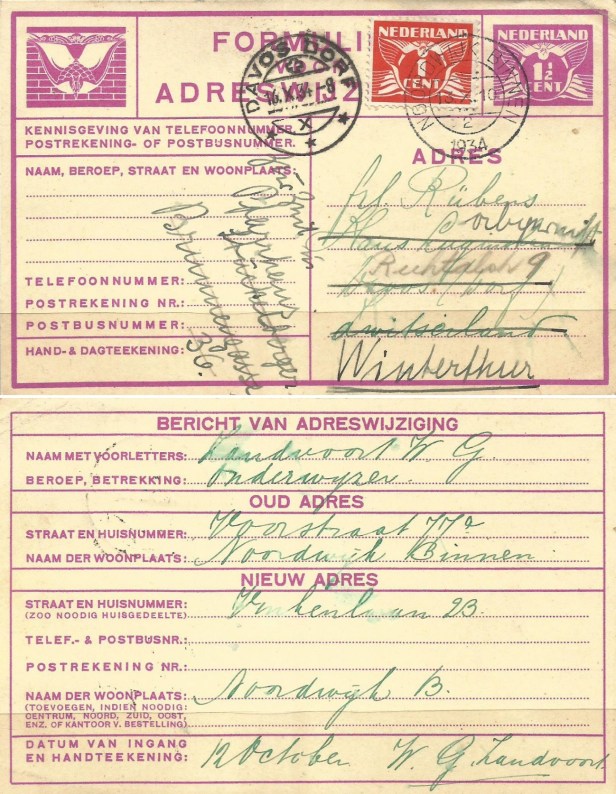 FORMULI
ADRESWIJZ
NEDERLAND
1
CENT
NEDERLAND
1½
CENT
DAVOS DORF
16.X.34.-8
X
NOORDWIJK BINNEN
2
1934
KENNISGEVING VAN TELEFOONNUMMER,
POSTREKENING- OF POSTBUSNUMMER.
NAAM, BEROEP, STRAAT EN WOONPLAATS:
TELEFOONNUMMER:
POSTREKENING NR.:
POSTBUSNUMMER:
HAND- & DAGTEEKENING:
Brunnengasse
36.
ADRES
Rübens
9
Davos (Dorf)
Zwitserland
Winterthur
BERICHT VAN ADRESWIJZIGING
NAAM MET VOORLETTERS: Landvoort W. G.
BEROEP, BETREKKING: Onderwyzer
OUD ADRES
STRAAT EN HUISNUMMER: Voorstraat 77a
NAAM DER WOONPLAATS: Noordwijk Binnen.
NIEUW ADRES
STRAAT EN HUISNUMMER: Vinkenlaan 23.
(ZOO NOODIG HUISGEDEELTE)
TELEF.- & POSTBUSNR.:
POSTREKENING NR.:
NAAM DER WOONPLAATS: Noordwijk B.
(TOEVOEGEN, INDIEN NOODIG
CENTRUM, NOORD, ZUID, OOST,
ENZ. OF KANTOOR V. BESTELLING)
DATUM VAN INGANG
EN HANDTEEKENING: 12 October W. G. Landvoort